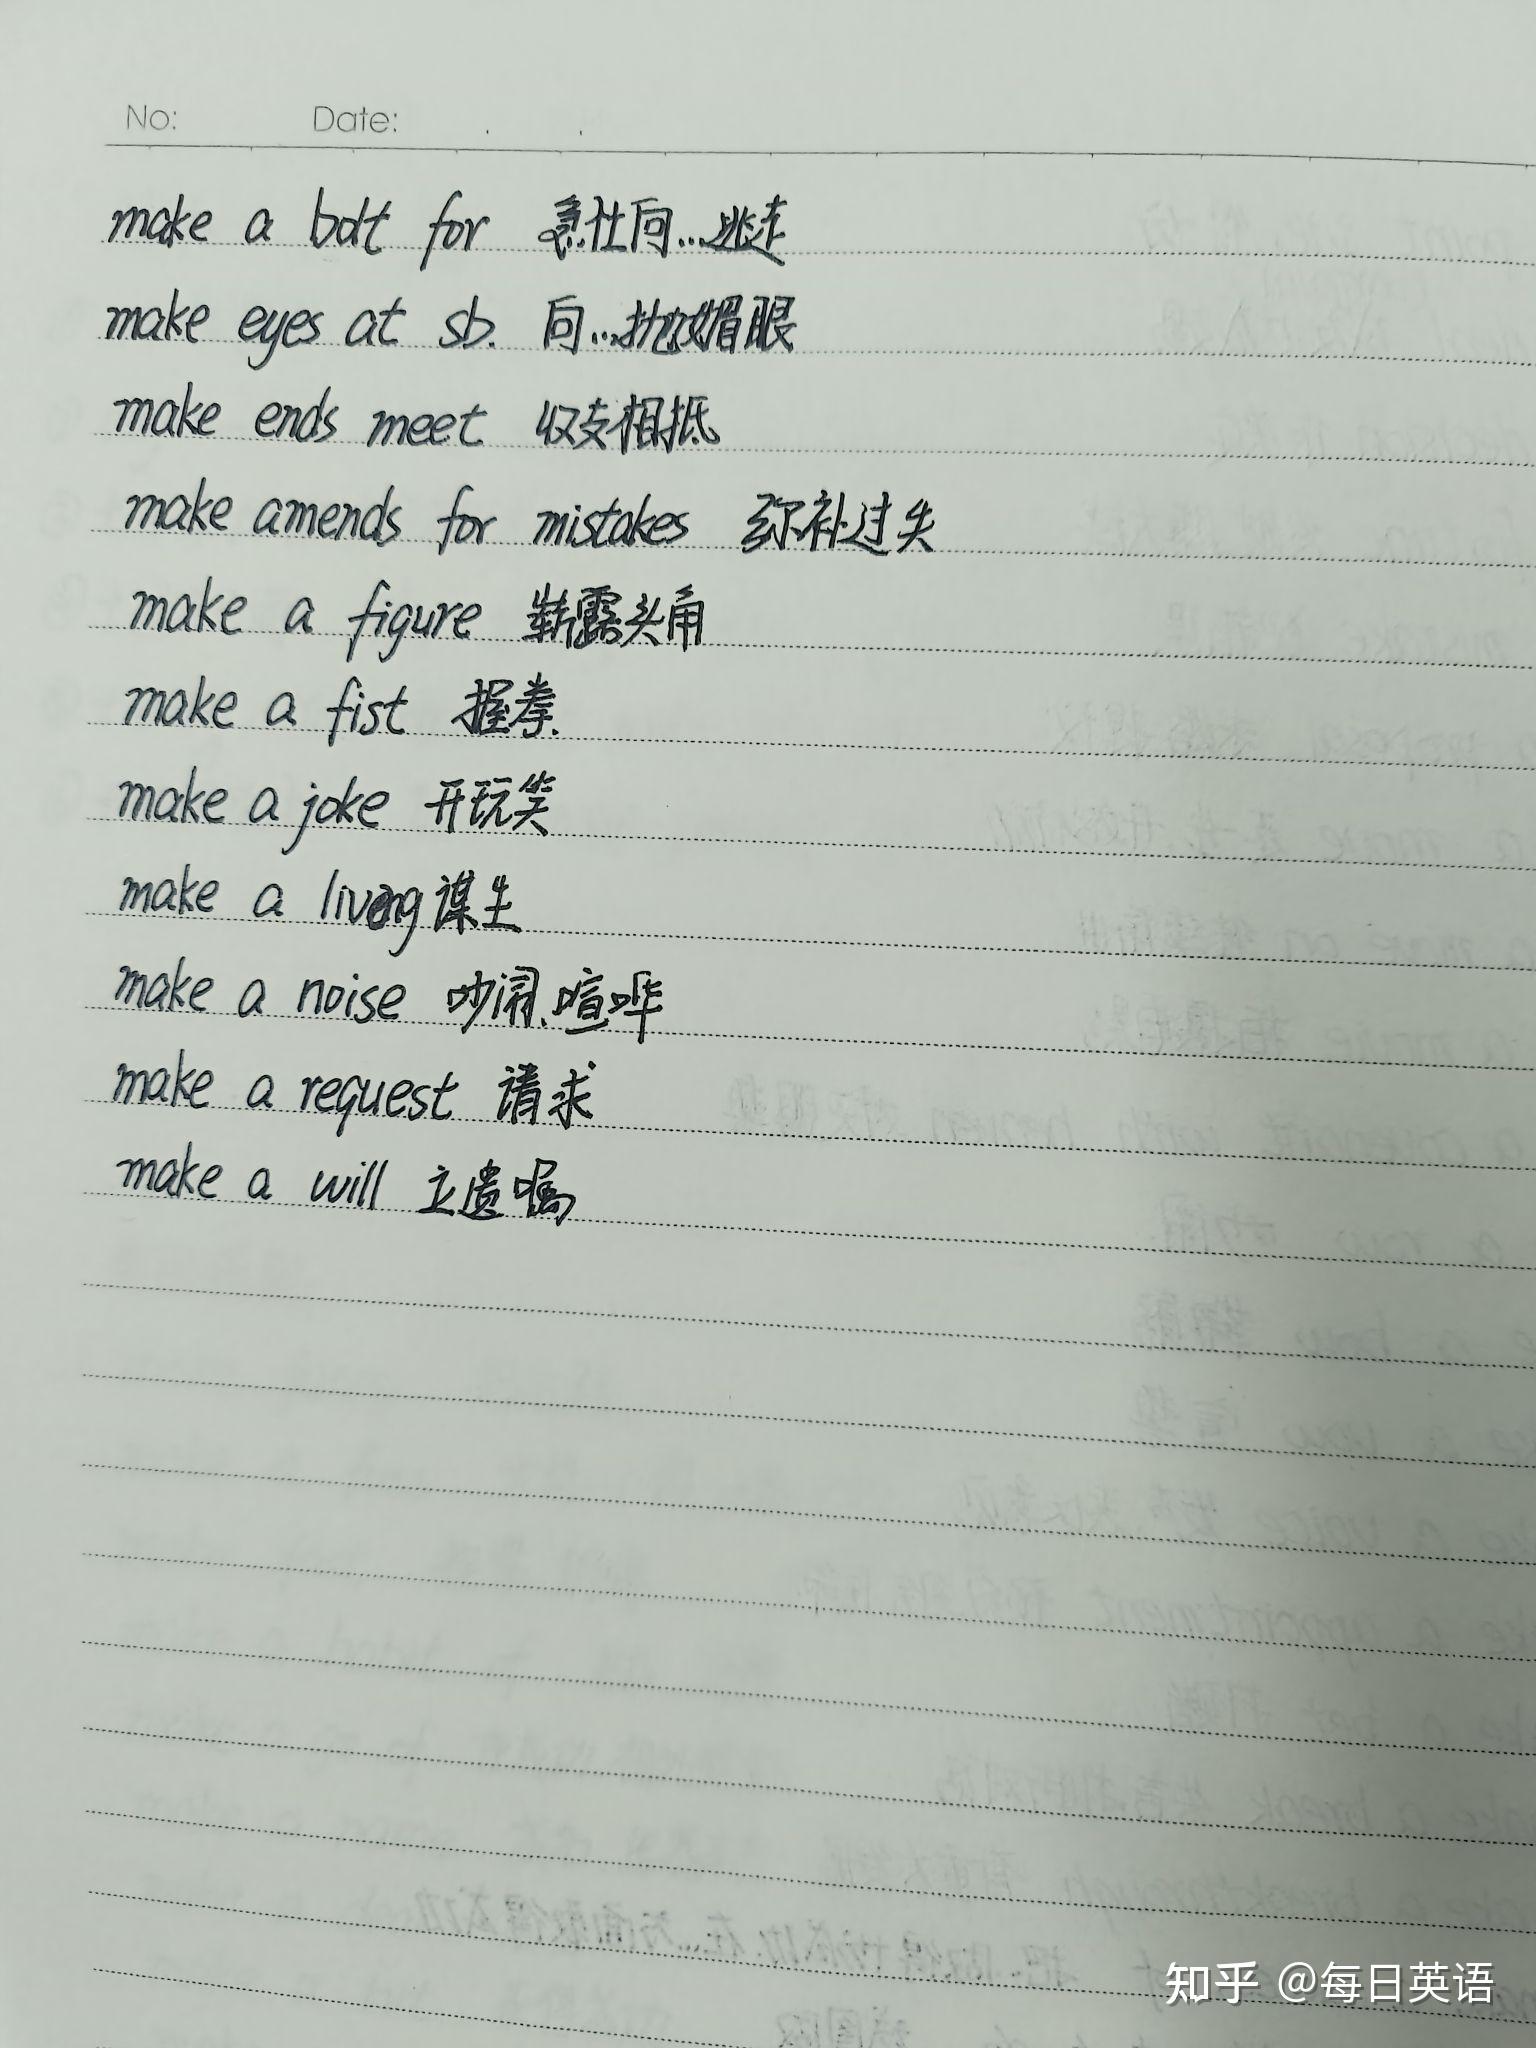 No: Date: . .
make a bolt for 急仕向...逃走
make eyes at sb. 向...抛媚眼
make ends meet 收支相抵
make amends for mistakes 弥补过失
make a figure 崭露头角
make a fist 握拳.
make a joke 开玩笑
make a living 谋生
make a noise 吵闹、喧哗
make a request 请求
make a will 立遗嘱
知乎 @每日英语